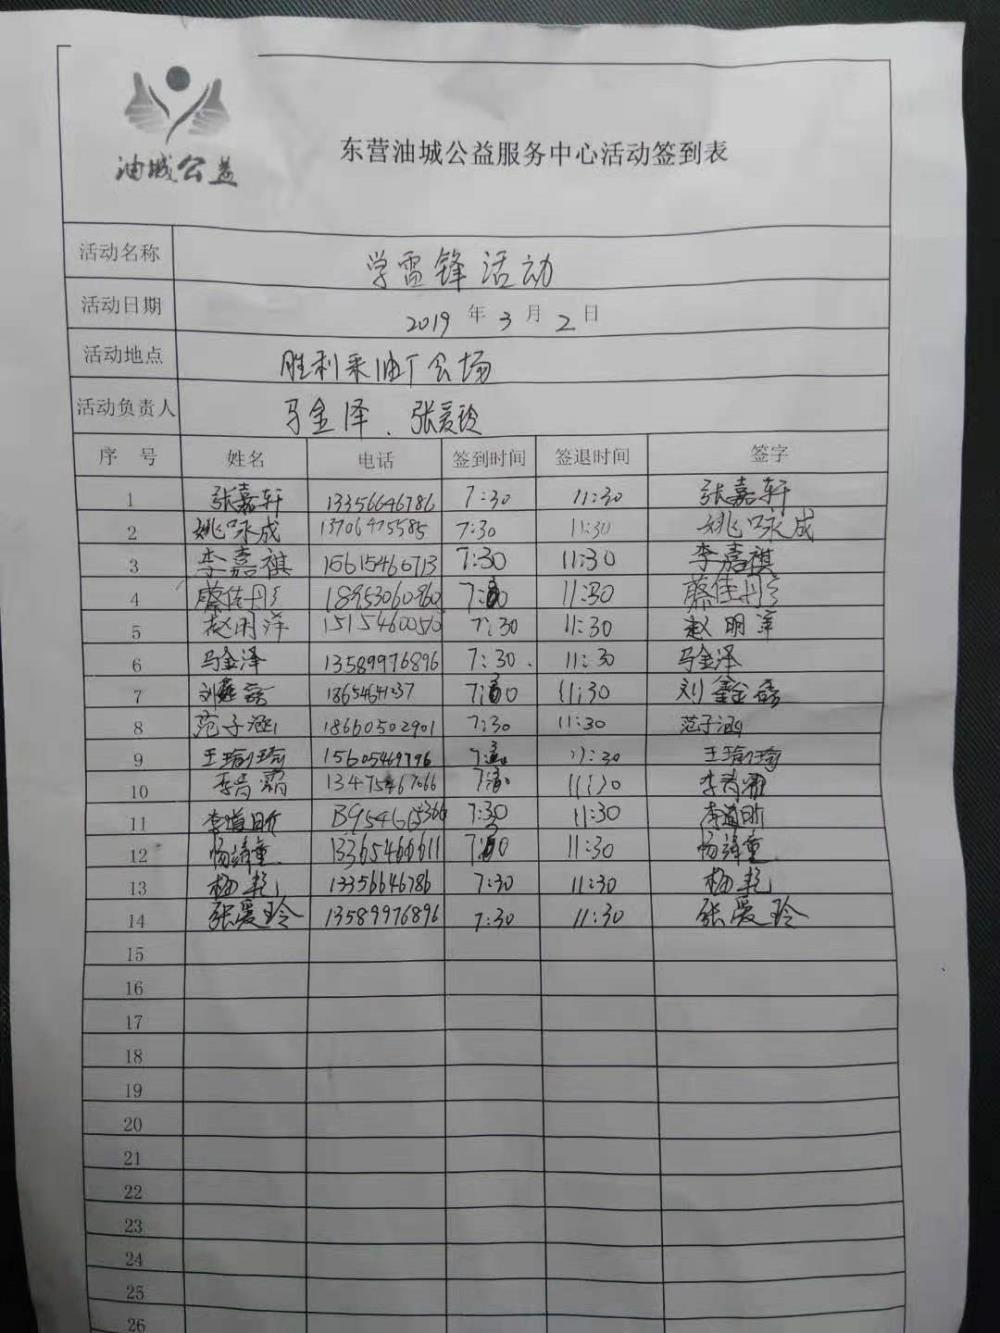 油城公益
东营油城公益服务中心活动签到表
活动名称 学雷锋活动
活动日期 2019 年 3 月 2 日
活动地点 胜利采油厂会场
活动负责人 马金泽、张爱玲
序 号 姓名 电话 签到时间 签退时间 签字
1 张嘉轩 13356646786 7:30 11:30 张嘉轩
2 姚咏成 13706475585 7:30 11:30 姚咏成
3 李嘉祺 15615460713 7:30 11:30 李嘉祺
4 蔡佳彤 18953060960 7:30 11:30 蔡佳彤
5 赵明洋 7:30 11:30 赵明洋
6 马金泽 13589976896 7:30 11:30 马金泽
7 刘鑫磊 7:30 11:30 刘鑫磊
8 范子涵 18660502901 7:30 11:30 范子涵
9 王瑜 15605469796 7:30 11:30 王瑜
10 李 13475467066 7:30 11:30 李
11 李道昕 7:30 11:30 李道昕
12 13365466611 7:30 11:30
13 杨 13356646786 7:30 11:30 杨
14 张爱玲 13589976896 7:30 11:30 张爱玲
15
16
17
18
19
20
21
22
23
24
25
26